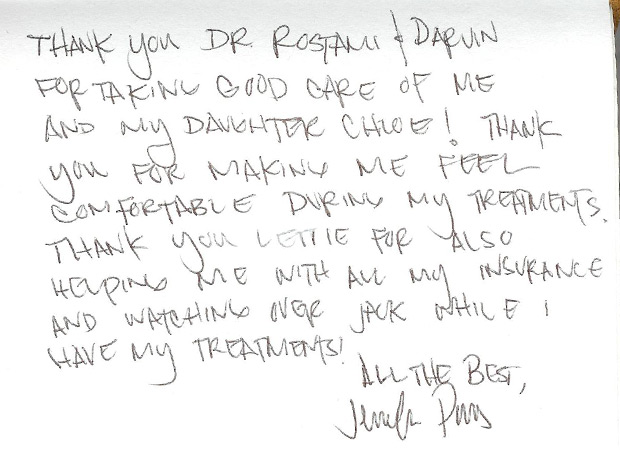 THANK YOU DR ROSTAMI & DARVIN
FOR TAKING GOOD CARE OF ME
AND MY DAUGHTER CHLOE! THANK
YOU FOR MAKING ME FEEL
COMFORTABLE DURING MY TREATMENTS.
THANK YOU LETTIE FOR ALSO
HELPING ME WITH ALL MY INSURANCE
AND WATCHING OVER JACK WHILE I
HAVE MY TREATMENTS!
ALL THE BEST,